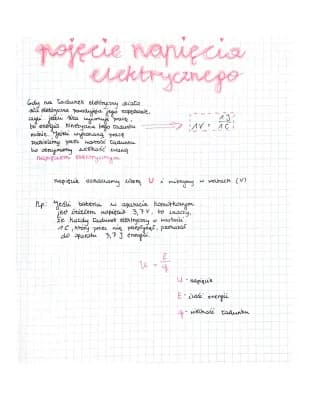 pojęcie napięcia
elektrycznego
Gdy na ładunek elektryczny działa
siła elektryczna powodująca jego
czyli jeśli siła wykonuje pracę,
to energia kinetyczna tego ładunku
rośnie. Jeśli wykonaną pracę
podzielimy przez wartość ładunku
to otrzymamy wielkość zwaną
napięciem elektrycznym
1V = 1J / 1C
napięcie oznaczamy literą U i mierzymy w woltach (V)
Np: Jeśli bateria w aparacie komórkowym
jest źródłem napięcia 3,7 V, to znaczy,
że każdy ładunek elektryczny o wartości
1C, który przez nią przepłynie, przenosi
do aparatu 3,7 J energii.
U = E / q
U - napięcie
E - ilość energii
q - wielkość ładunku